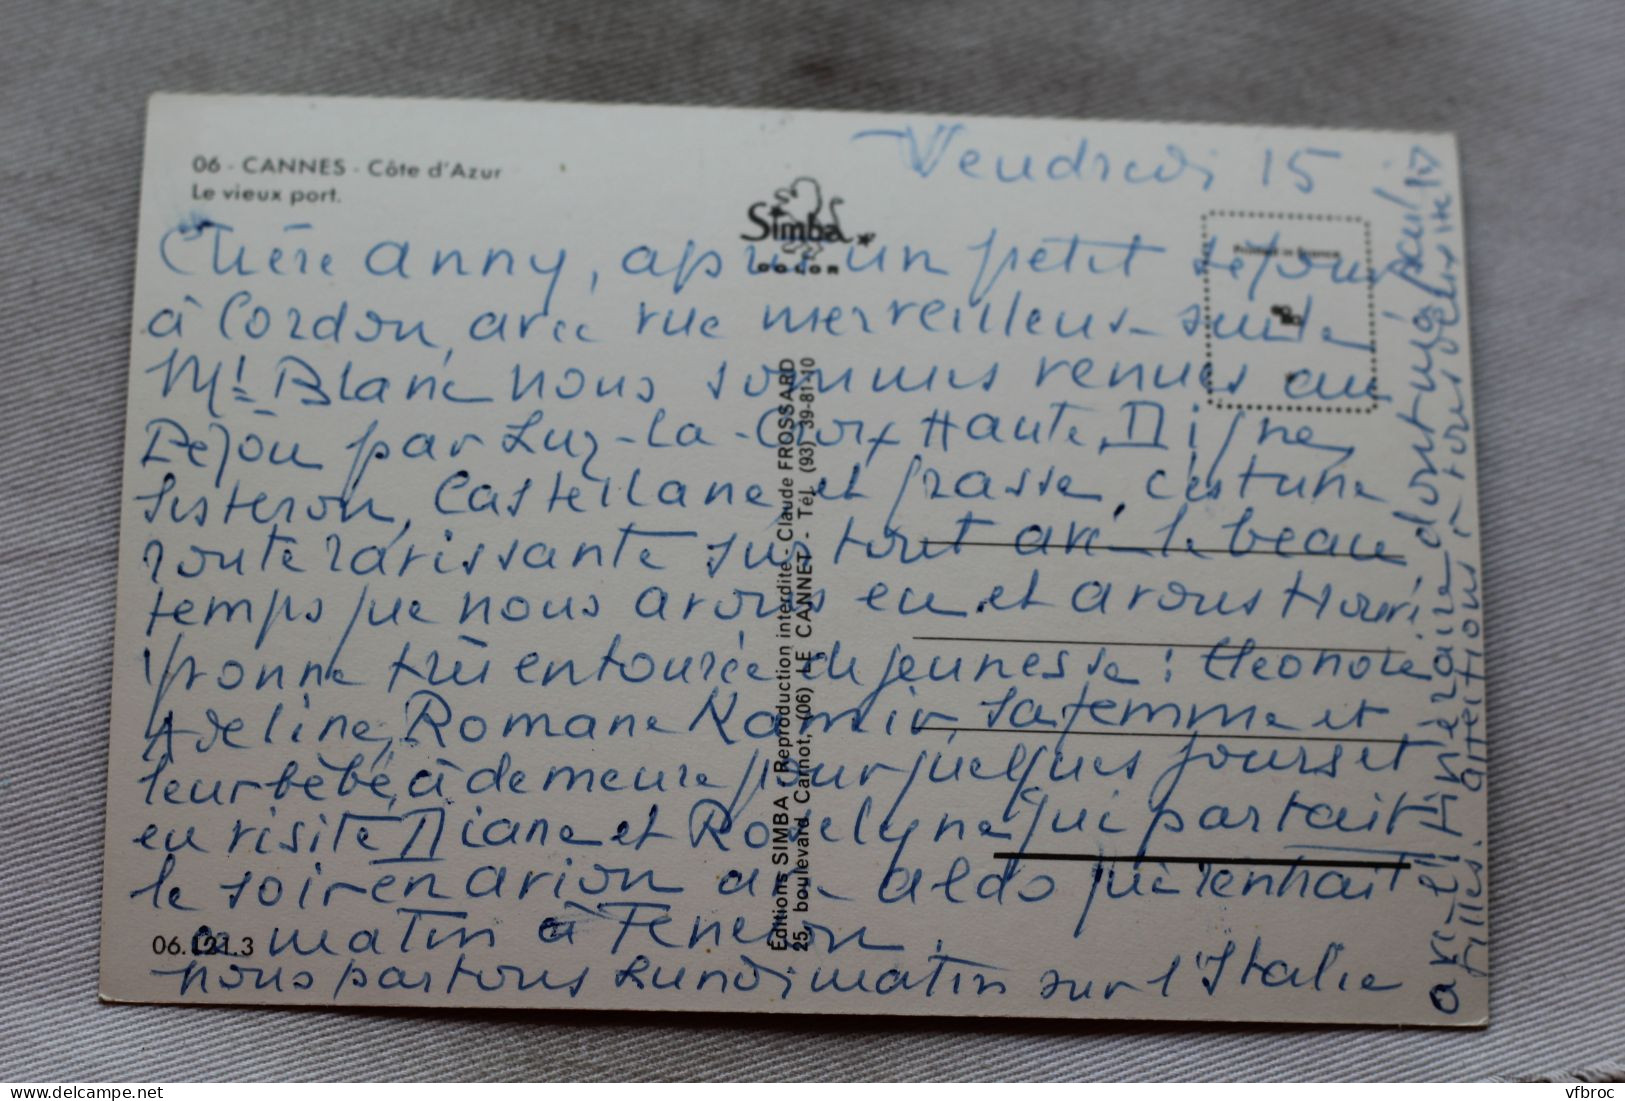 06 - CANNES - Côte d'Azur
Le vieux port.
Simba
COLOR
Vendredi 15
Chère Anny, après un petit séjour
à Cordon, avec vue merveilleuse sur le
Mt Blanc nous sommes venues au
Péjou par Luz-la-Croix Haute, Digne,
Sisteron, Castellane et Grasse, c'est une
route ravissante surtout avec le beau
temps que nous avons eu et avons trouvé
Yvonne très entourée de jeunesse : Eléonore
Adeline, Romane Kamir, sa femme et
leur bébé, à demeure pour quelques jours et
en visite Diane et Roselyne qui partait
le soir en avion avec Aldo qui rentrait
ce matin à Feneron.
06.121.3
nous partons Lundi matin sur l'Italie
avec l'itinéraire dont m'a parlé
filles. affections à tous deux
Éditions SIMBA - Reproduction interdite - Claude FROSSARD
25, boulevard Carnot, (06) LE CANNET - Tél. (93) 39-81-10
vfbroc